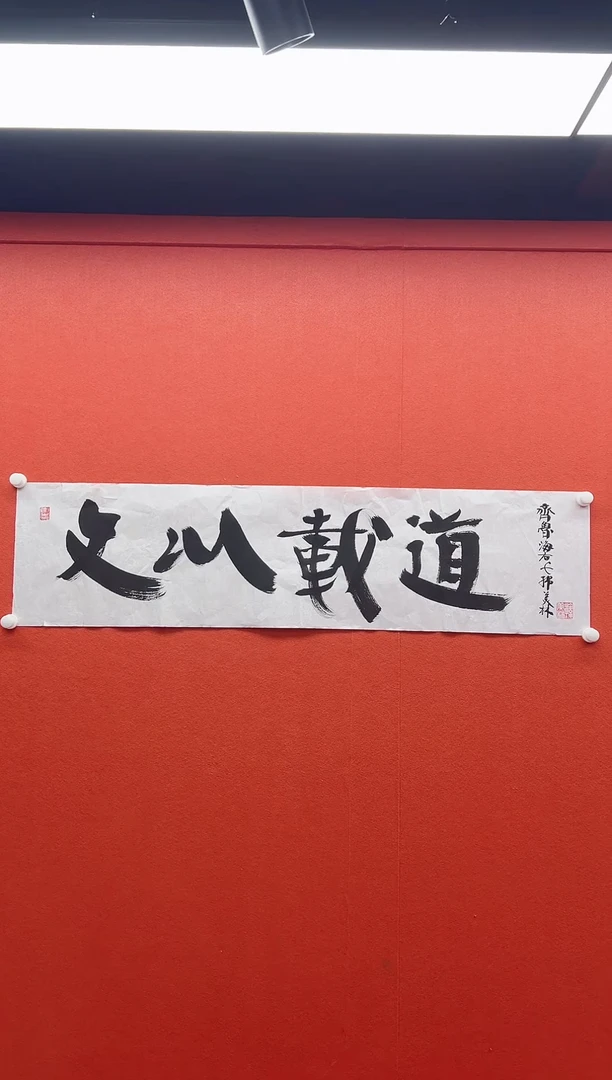 文以載道
齊魯海右人韩美林